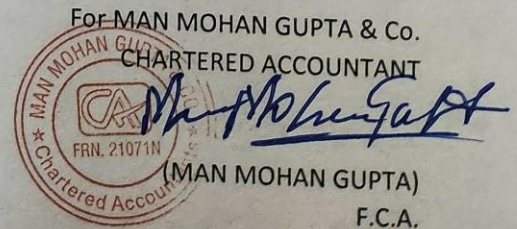 For MAN MOHAN GUPTA & Co.
CHARTERED ACCOUNTANT
MAN MOHAN GUPTA
CA
FRN. 21071N
Chartered Accou
Man Mohan Gupta
(MAN MOHAN GUPTA)
F.C.A.